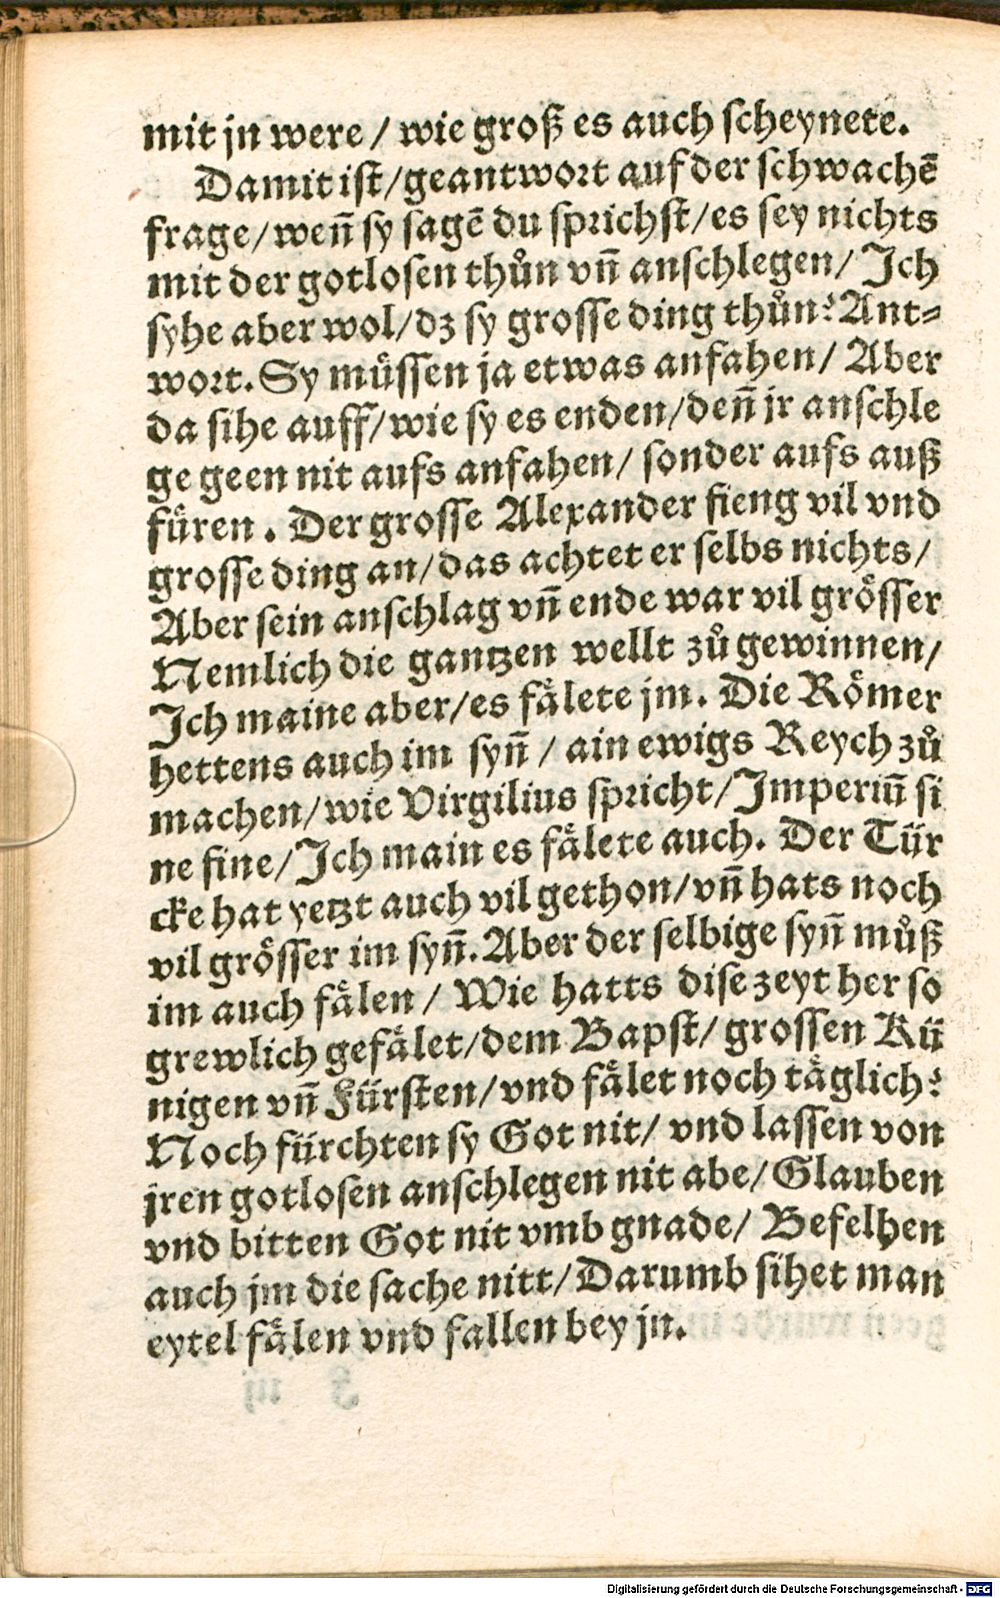 mit jn were / wie groß es auch scheynete.
Damit ist/geantwort auf der schwachē
frage/weñ sy sagē du sprichst/es sey nichts
mit der gotlosen thůn vñ anschlegen/ Ich
syhe aber wol/dz sy grosse ding thůn? Ant-
wort. Sy müssen ja etwas anfahen/ Aber
da sihe auff/wie sy es enden/deñ jr anschle
ge geen nit aufs anfahen/ sonder aufs auß
füren. Der grosse Alexander fieng vil vnd
grosse ding an/das achtet er selbs nichts/
Aber sein anschlag vñ ende war vil grösser
Nemlich die gantzen wellt zů gewinnen/
Ich maine aber/es fälete jm. Die Römer
hettens auch im syñ / ain ewigs Reych zů
machen/wie Virgilius spricht/Imperiū si
ne fine/Ich main es fälete auch. Der Tür
cke hat yetzt auch vil gethon/vñ hats noch
vil grösser im syñ. Aber der selbige syñ můß
im auch fälen / Wie hatts dise zeyt her so
grewlich gefälet/dem Bapst/ grossen Kü
nigen vñ Fürsten/vnd fälet noch täglich?
Noch fürchten sy Got nit/ vnd lassen von
jren gotlosen anschlegen nit abe/Glauben
vnd bitten Got nit vmb gnade/ Befelhen
auch jm die sache nitt/Darumb sihet man
eytel fälen vnd fallen bey jn.
Digitalisierung gefördert durch die Deutsche Forschungsgemeinschaft - DFG